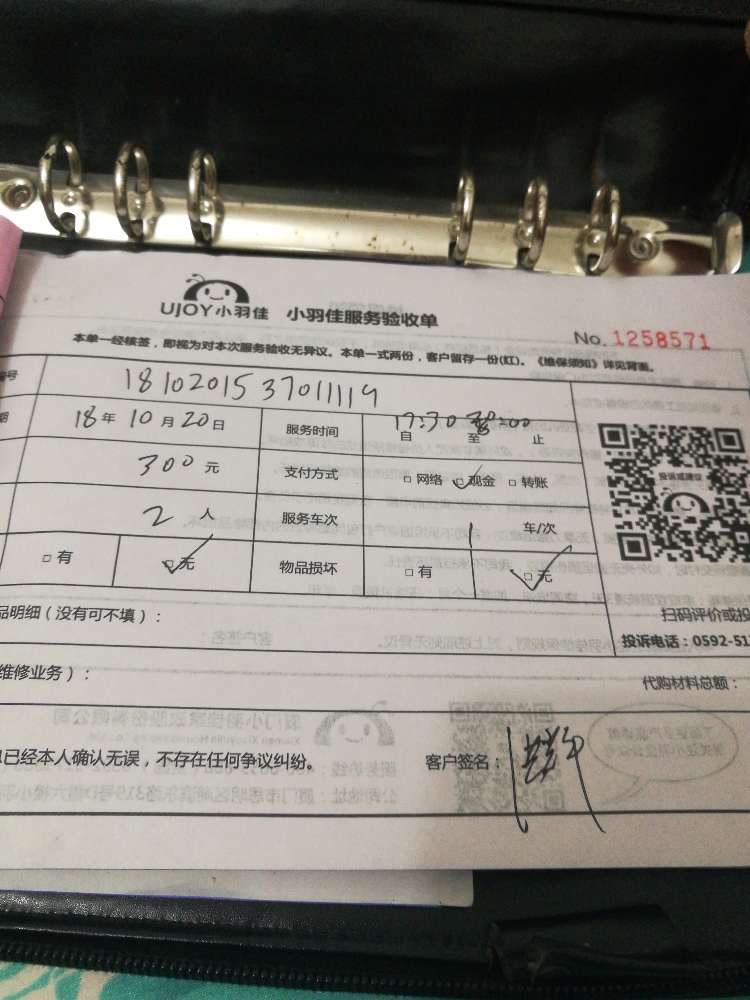 UJOY小羽佳 小羽佳服务验收单
No. 1258571
本单一经核签，即视为对本次服务验收无异议。本单一式两份，客户留存一份(红)。《维保须知》详见背面。
编号 18102015 37011119
期 18年 10月 20日 服务时间 17:30 自 至 止
300元 支付方式 □网络 □现金 □转账
2人 服务车次 1 车/次
□有 □无 物品损坏 □有 □无
投诉或建议
扫码评价或投
品明细（没有可不填）：
投诉电话：0592-51
维修业务）：
代购材料总额：
息已经本人确认无误，不存在任何争议纠纷。 客户签名：